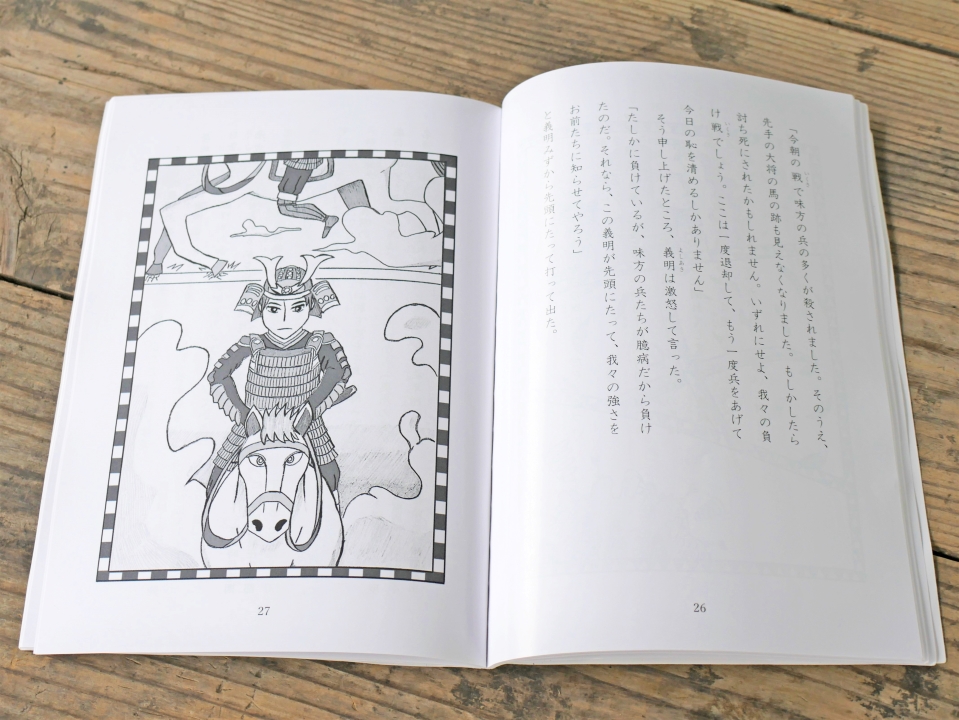 「今朝の戦で味方の兵の多くが殺されました。そのうえ、
先手の大将の馬の跡も見えなくなりました。もしかしたら
討ち死にされたかもしれません。いずれにせよ、我々の負
け戦でしょう。ここは一度退却して、もう一度兵をあげて
今日の恥を清めるしかありません」
そう申し上げたところ、義明は激怒して言った。
「たしかに負けているが、味方の兵たちが臆病だから負け
たのだ。それなら、この義明が先頭にたって、我々の強さを
お前たちに知らせてやろう」
と義明みずから先頭にたって打って出た。
26
27